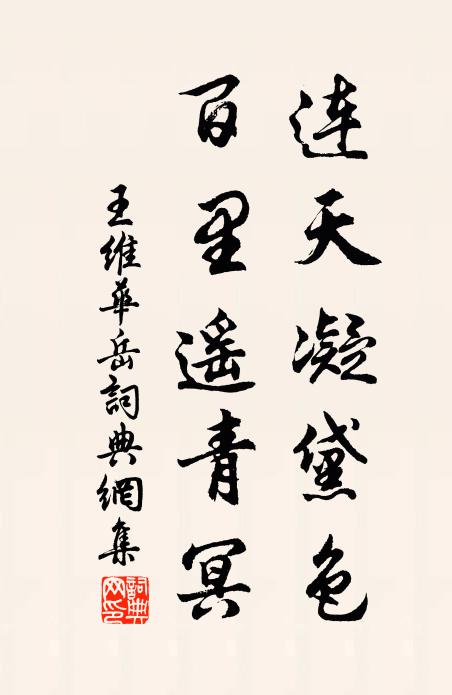 连天凝黛色
百里遥青冥
王維華岳詞典網集
詞典
网印